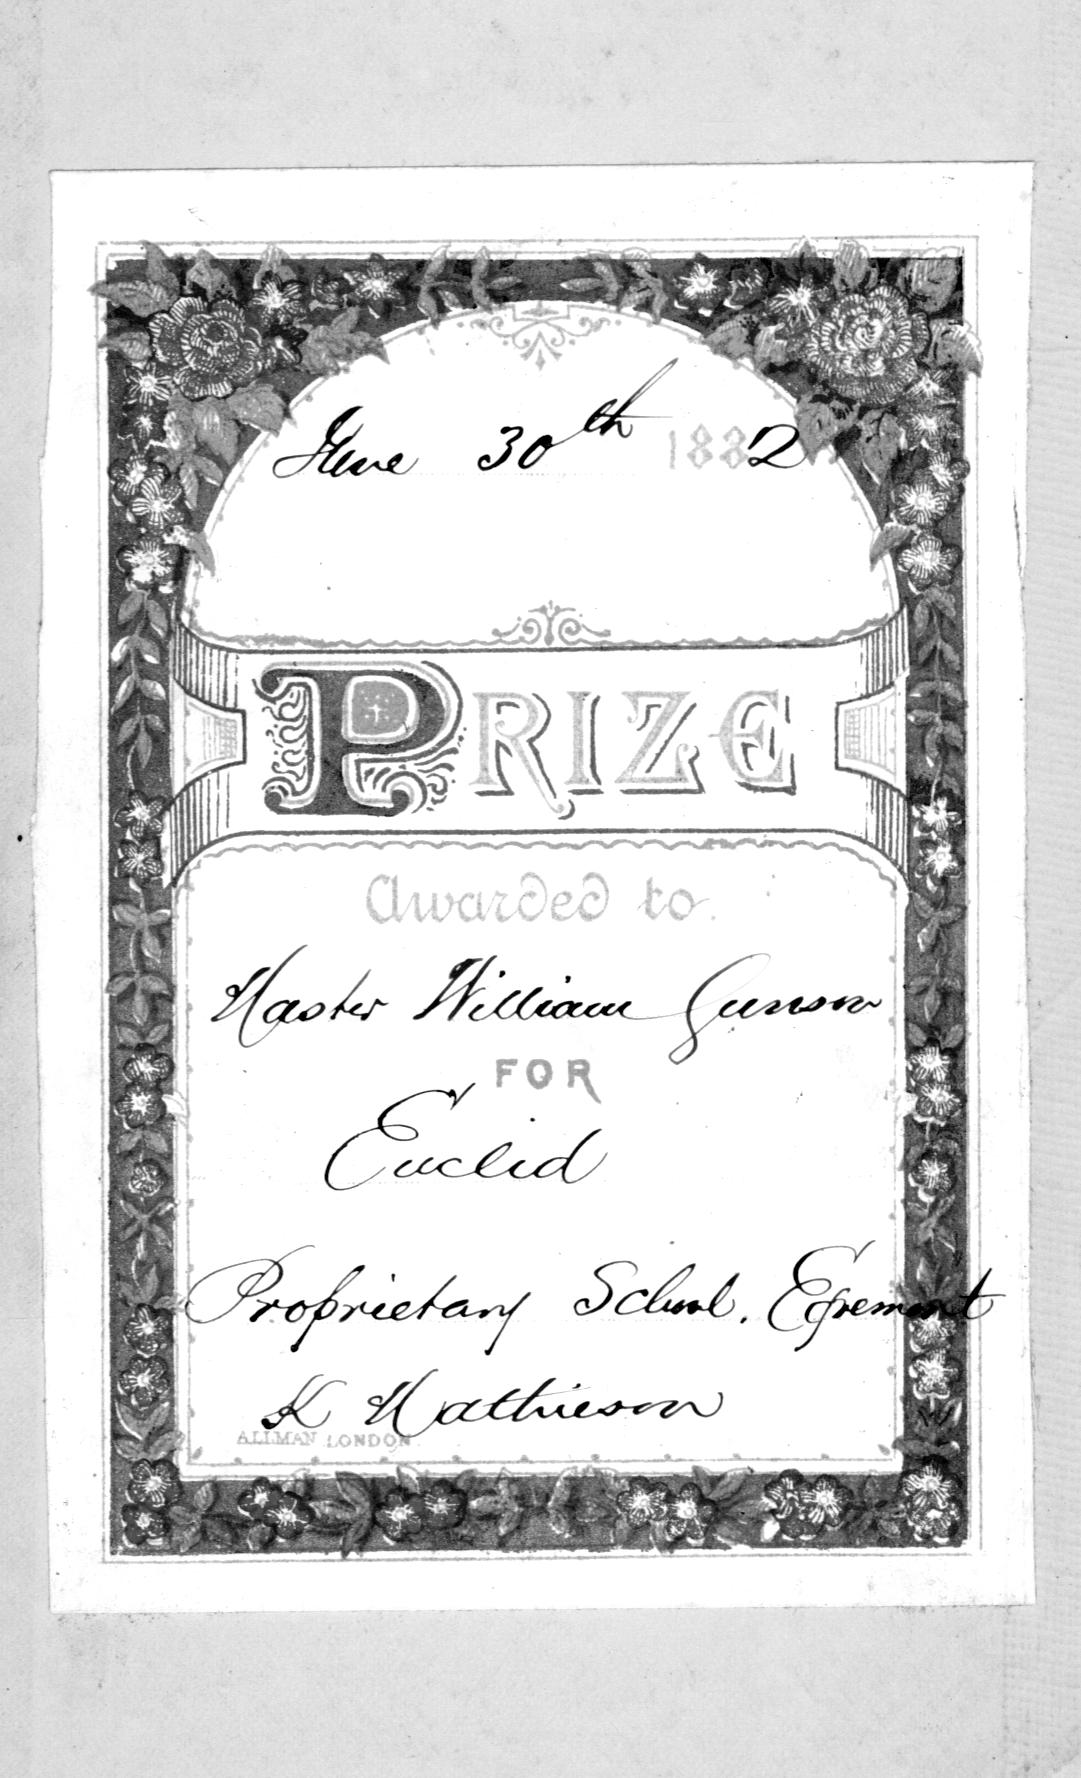 June 30th 1882
PRIZE
Awarded to.
Master William Gunson
FOR
Euclid
Proprietary School. Egremont
K Mathieson
ALLMAN LONDON